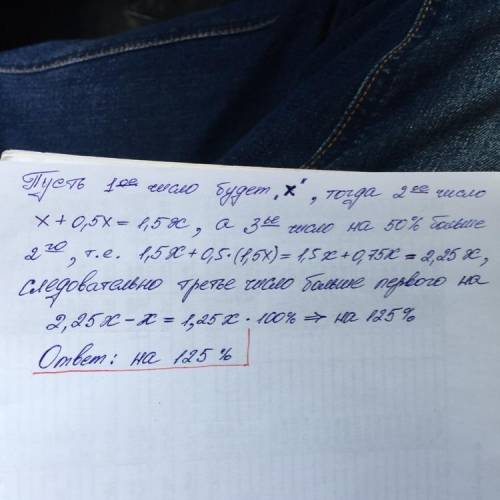 Пусть 1ое число будет „x", тогда 2ое число
x + 0,5x = 1,5x, а 3ье число на 50% больше
2го, т.е. 1,5x + 0,5·(1,5x) = 1,5x + 0,75x = 2,25x,
следовательно третье число больше первого на
2,25x - x = 1,25x · 100% ⇒ на 125%
Ответ: на 125%